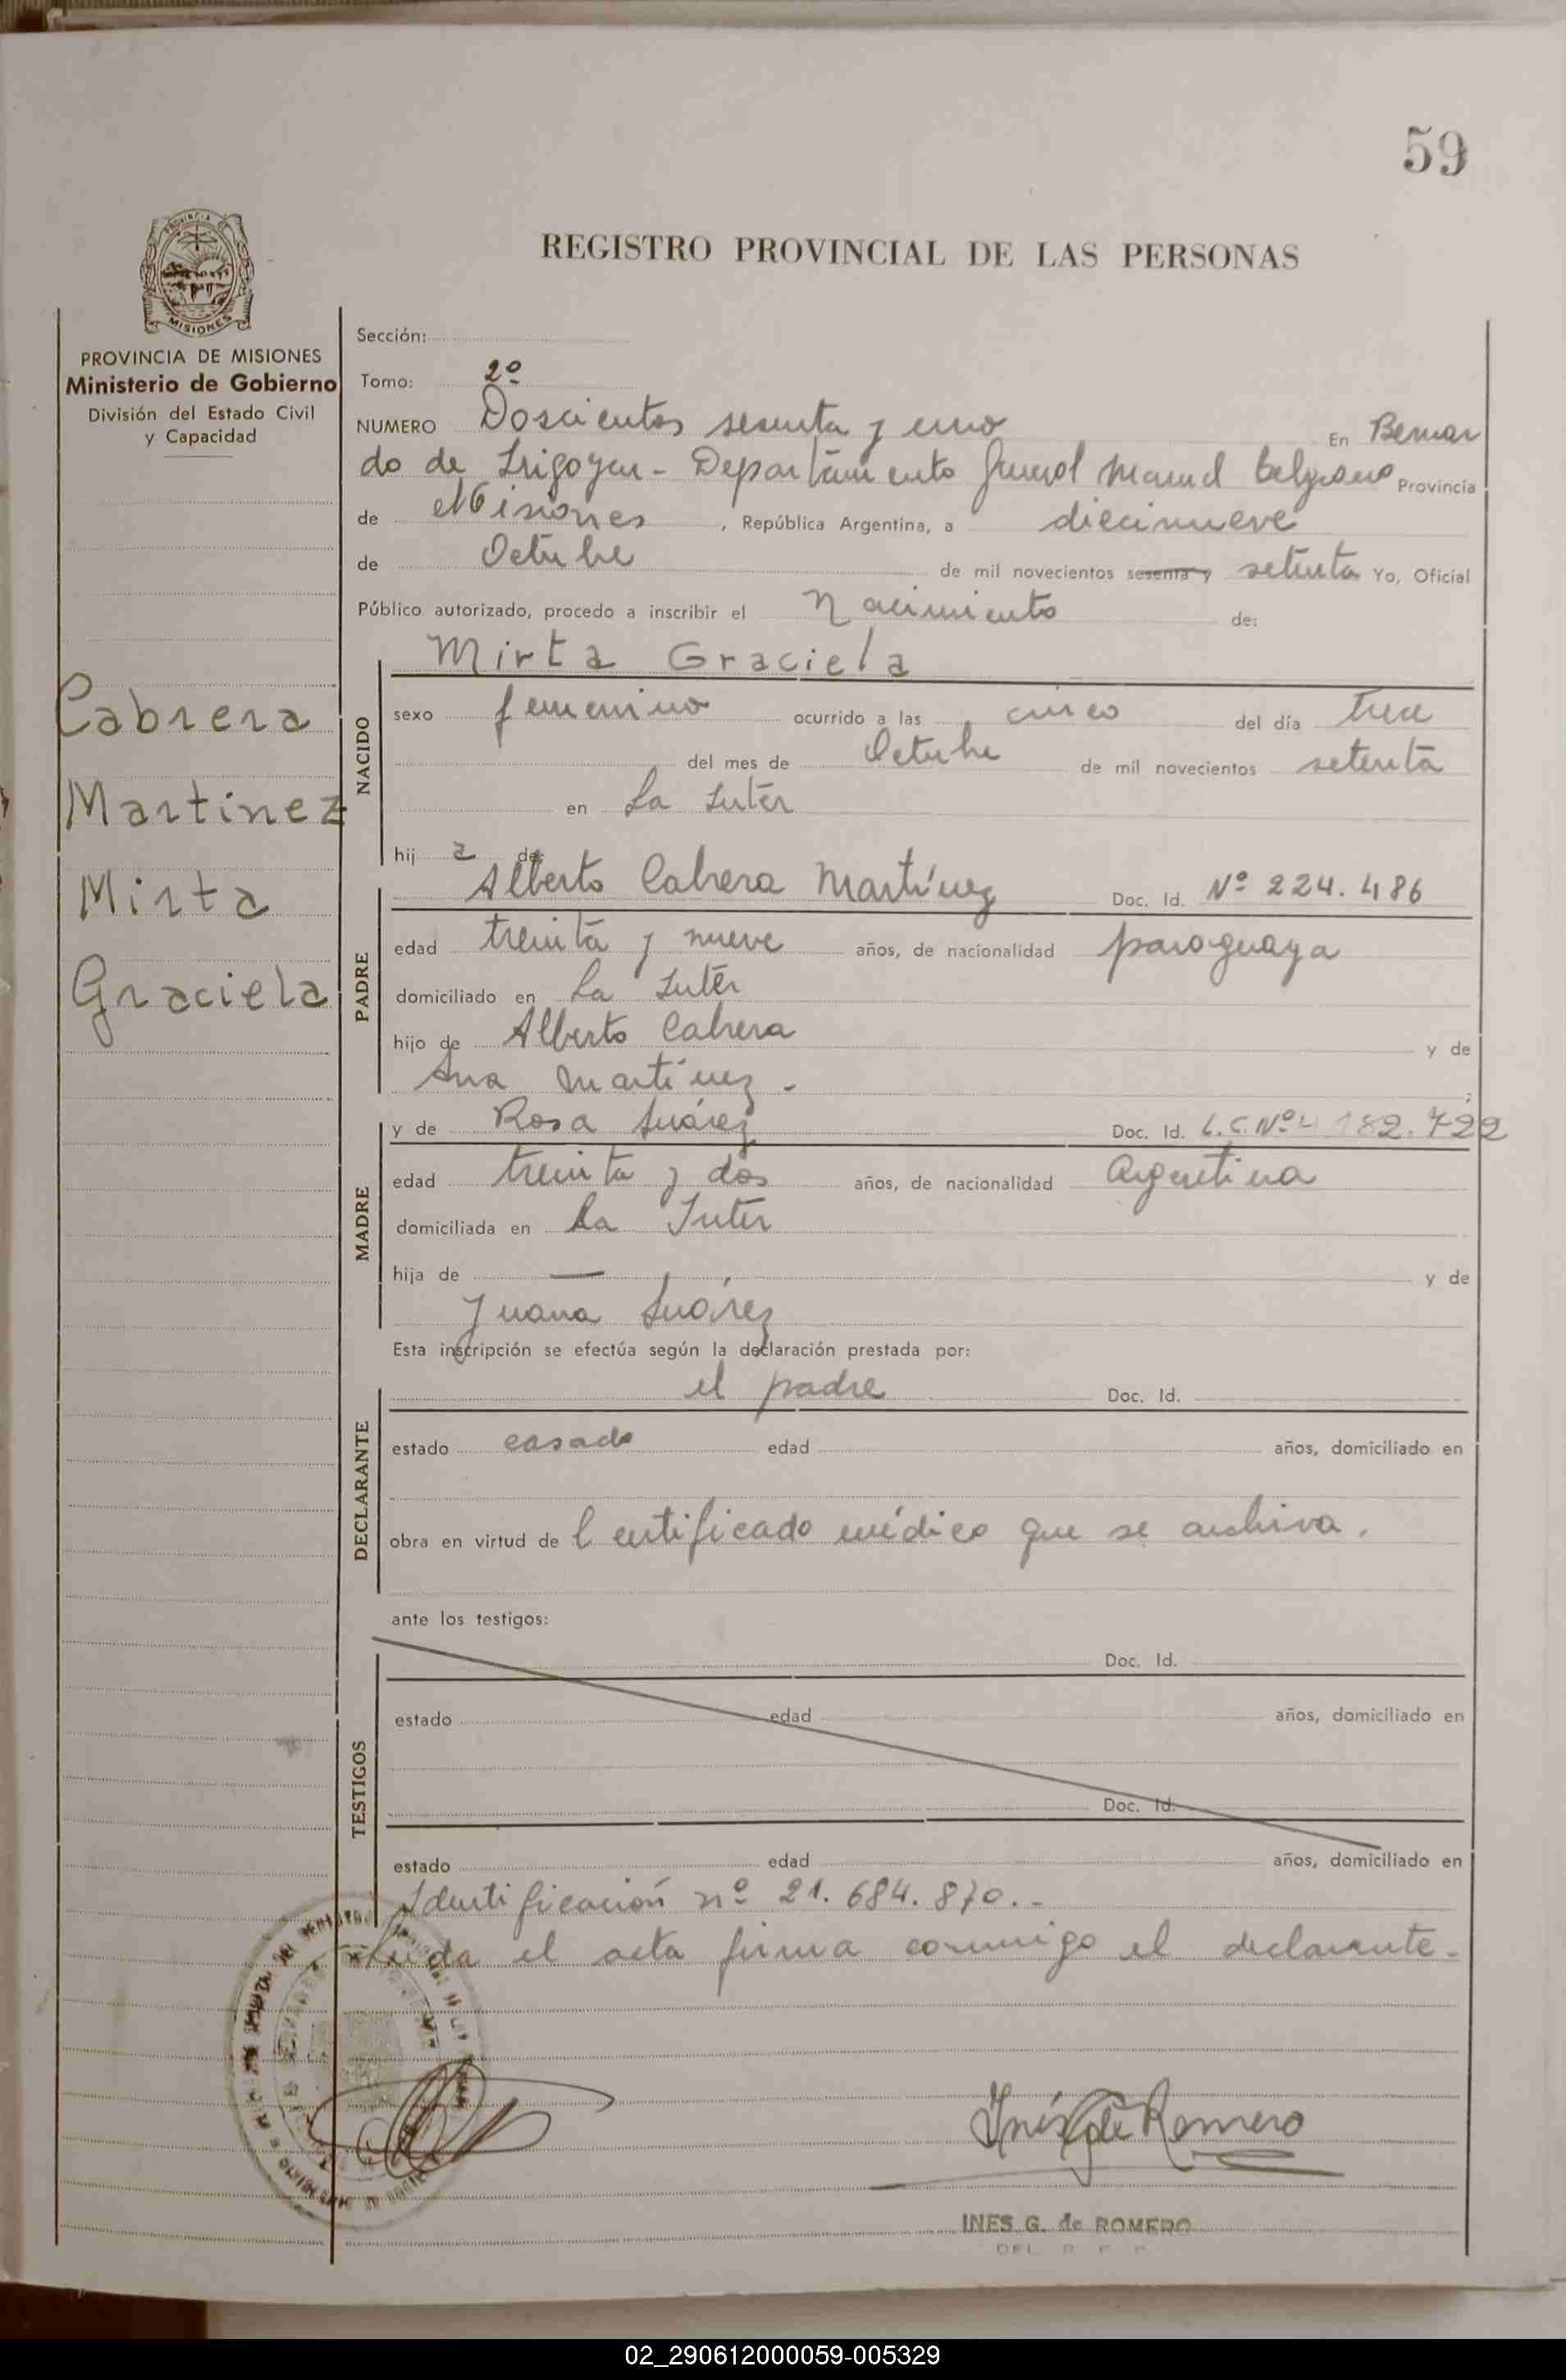 59
REGISTRO PROVINCIAL DE LAS PERSONAS
PROVINCIA DE MISIONES
Ministerio de Gobierno
División del Estado Civil
y Capacidad
Cabrera
Martinez
Mirta
Graciela
Sección:
Tomo: 2º
NUMERO Doscientos sesenta y uno En Bernar
do de Irigoyen - Departamento General Manuel Belgrano Provincia
de Misiones, República Argentina, a diecinueve
de Octubre de mil novecientos sesenta y setenta Yo, Oficial
Público autorizado, procedo a inscribir el Nacimiento de:
NACIDO
Mirta Graciela
sexo femenino ocurrido a las cinco del día trece
del mes de Octubre de mil novecientos setenta
en La Inter
hij a de:
PADRE
Alberto Cabrera Martínez Doc. Id. Nº 224.486
edad treinta y nueve años, de nacionalidad paraguaya
domiciliado en La Inter
hijo de Alberto Cabrera y de
Ana Martínez - ;
MADRE
y de Rosa Suárez Doc. Id. L.C. Nº 4 182.722
edad treinta y dos años, de nacionalidad Argentina
domiciliada en La Inter
hija de — y de
Juana Suárez
Esta inscripción se efectúa según la declaración prestada por:
DECLARANTE
el padre Doc. Id.
estado casado edad años, domiciliado en
obra en virtud de Certificado médico que se archiva.
ante los testigos:
TESTIGOS
Doc. Id.
estado edad años, domiciliado en
Doc. Id.
estado edad años, domiciliado en
Identificación nº 21.684.870.-
Leida el acta firma conmigo el declarante-
Inés G de Romero
INES G. de ROMERO
02_290612000059-005329